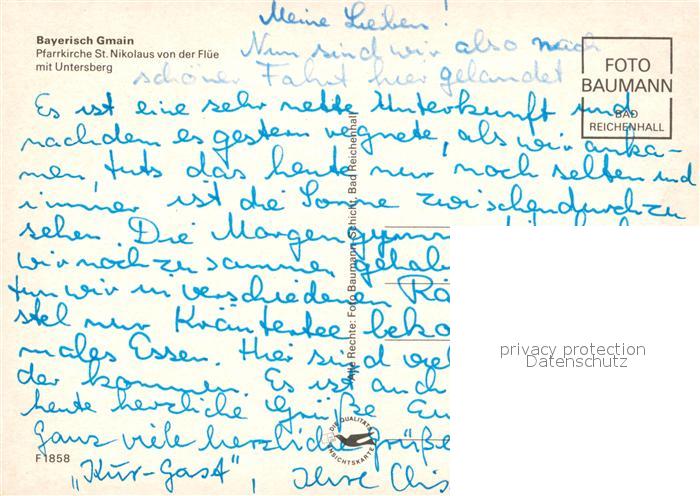 Bayerisch Gmain
Pfarrkirche St. Nikolaus von der Flüe
mit Untersberg
FOTO
BAUMANN
BAD
REICHENHALL
Meine Lieben!
Nun sind wir also nach
schöner Fahrt hier gelandet
Es ist eine sehr nette Unterkunft und
nachdem es gestern regnete, als wir anka-
men, tuts das heute nur noch selten und
immer ist die Sonne zwischendurch zu
sehen. Die Morgengymn
wir noch zusammen gehab
tun wir in verschiedenen Rä
stel nur Kräutertee beko
males Essen. Hier sind viel
der kommen. Es ist auch
heute herzliche Grüße Eu
Ganz viele herzliche Grüße
„Kur-Gast", Ihre Chris
Alle Rechte: Foto Baumann-Schicht, Bad Reichenhall
DIE QUALITÄTS
ANSICHTSKARTE
F 1858
privacy protection
Datenschutz